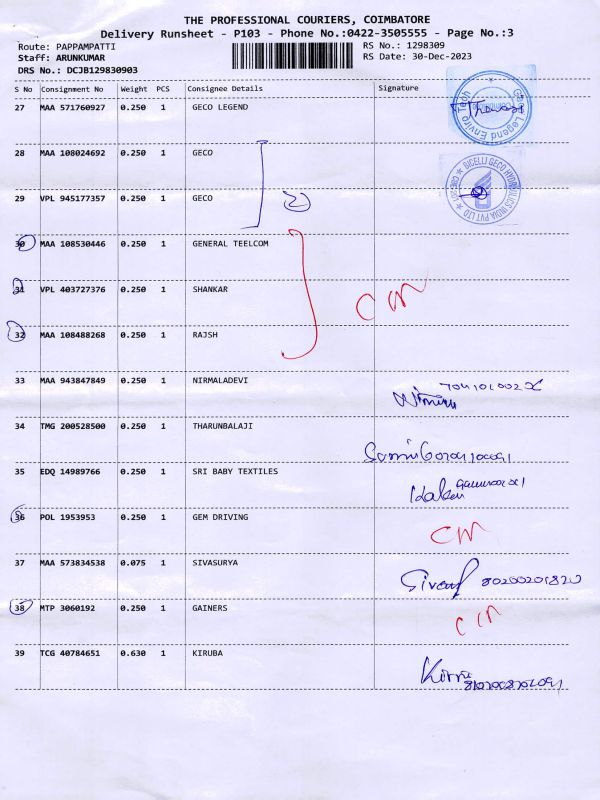 THE PROFESSIONAL COURIERS, COIMBATORE
Delivery Runsheet - P103 - Phone No.:0422-3505555 - Page No.:3
Route: PAPPAMPATTI RS No.: 1298309
Staff: ARUNKUMAR RS Date: 30-Dec-2023
DRS No.: DCJB129830903
S No Consignment No Weight PCS Consignee Details Signature
27 MAA 571760927 0.250 1 GECO LEGEND
28 MAA 108024692 0.250 1 GECO
29 VPL 945177357 0.250 1 GECO 2
30 MAA 108530446 0.250 1 GENERAL TEELCOM
31 VPL 403727376 0.250 1 SHANKAR
32 MAA 108488268 0.250 1 RAJSH
33 MAA 943847849 0.250 1 NIRMALADEVI
34 TMG 200528500 0.250 1 THARUNBALAJI
35 EDQ 14989766 0.250 1 SRI BABY TEXTILES
36 POL 1953953 0.250 1 GEM DRIVING
37 MAA 573834538 0.075 1 SIVASURYA
38 MTP 3060192 0.250 1 GAINERS
39 TCG 40784651 0.630 1 KIRUBA